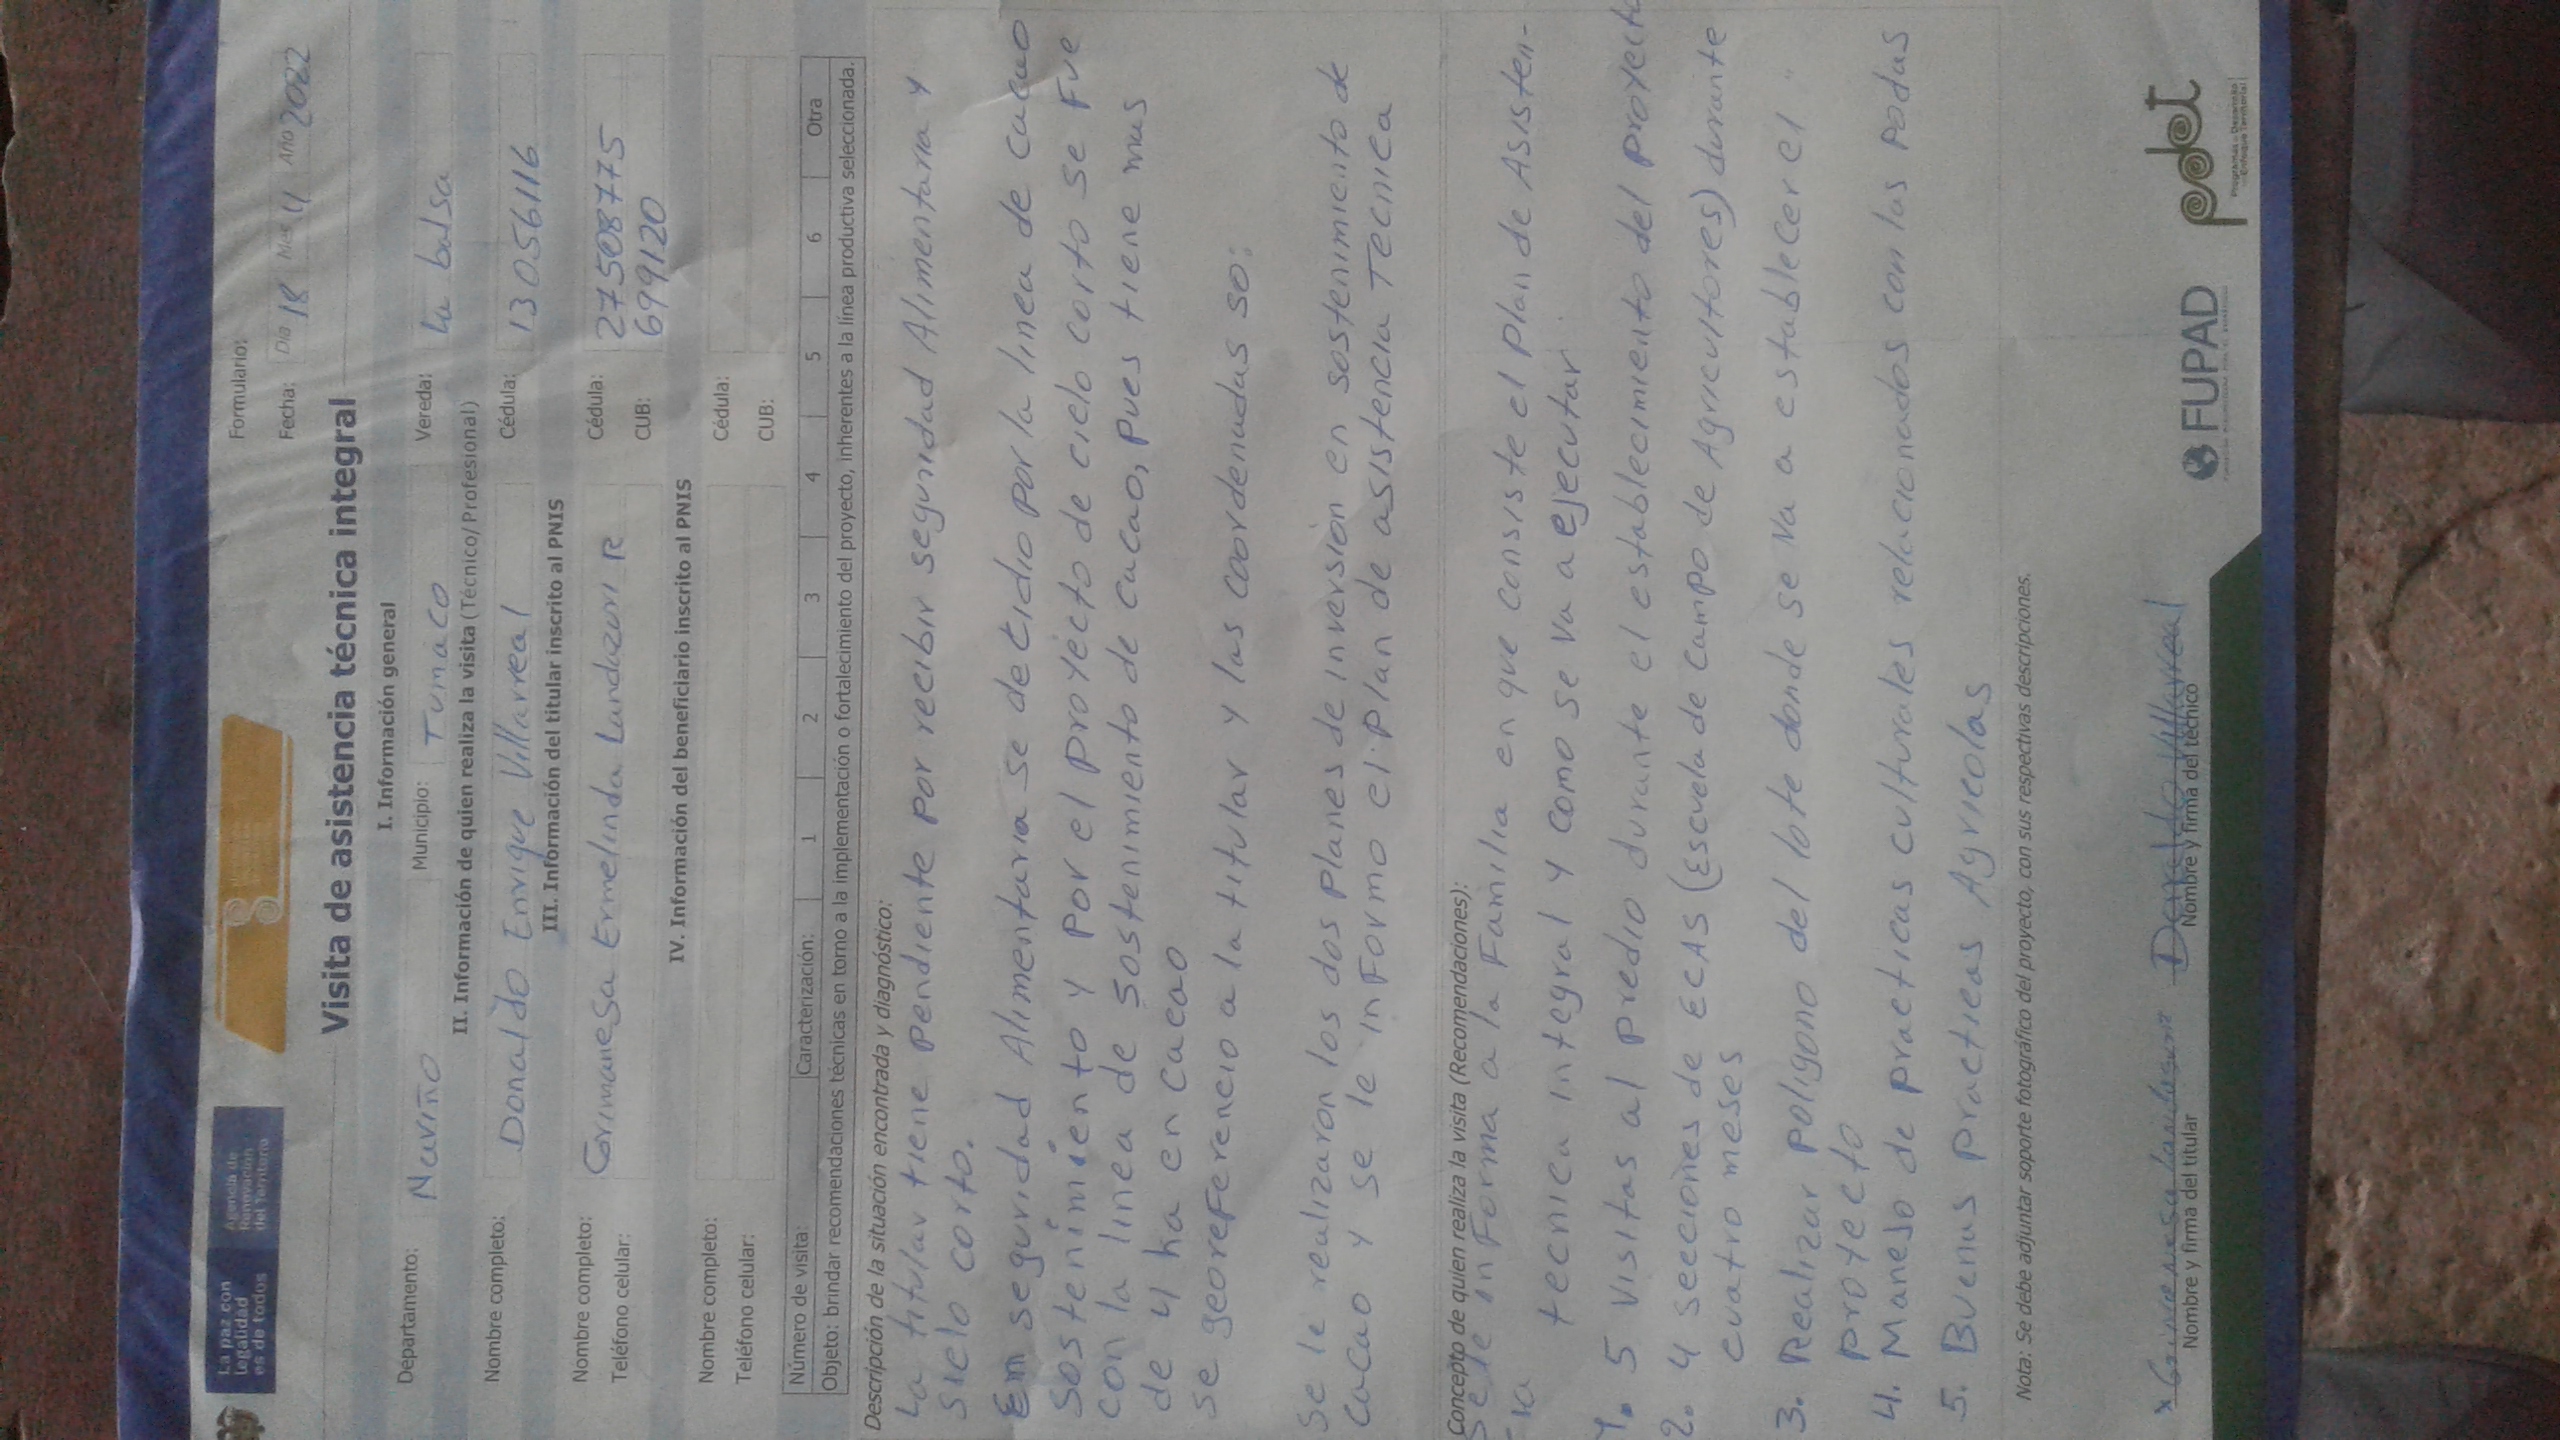 La paz con
legalidad
es de todos
Agencia de
Renovación
del Territorio
Formulario:
Fecha: Día 18 Mes 4 Año 2022
Visita de asistencia técnica integral
I. Información general
Departamento: Nariño Municipio: Tumaco Vereda: La balsa
II. Información de quien realiza la visita (Técnico/Profesional)
Nombre completo: Donaldo Enrique Villarreal Cédula: 13056116
III. Información del titular inscrito al PNIS
Nombre completo: Grimanesa Ermelinda Landazuri R Cédula: 27508775
Teléfono celular: CUB: 699120
IV. Información del beneficiario inscrito al PNIS
Nombre completo: Cédula:
Teléfono celular: CUB:
Número de visita: Caracterización: 1 2 3 4 5 6 Otra
Objeto: brindar recomendaciones técnicas en torno a la implementación o fortalecimiento del proyecto, inherentes a la línea productiva seleccionada.
Descripción de la situación encontrada y diagnóstico:
La titular tiene Pendiente por recibir seguridad Alimentaria y
siclo corto.
Em seguridad Alimentaria se dectidio por la linea de cacao
sostenimiento y Por el proyecto de ciclo corto se Fue
con la linea de sostenimiento de cacao, pues tiene mas
de 4 ha en cacao
se georeferencio a la titular y las coordenadas so:
se le realizaron los dos planes de inversion en sostenimiento de
cacao y se le informo el plan de asistencia Tecnica
Concepto de quien realiza la visita (Recomendaciones):
se le informa a la Familia en que consiste el Plan de Asisten-
cia tecnica integral y como se va a ejecutar.
1. 5 visitas al predio durante el establecimiento del proyecto
2. 4 secciones de ECAS (Escuela de Campo de Agricultores) durante
cuatro meses
3. Realizar poligono del lote donde se va a establecer el
proyecto
4. Manejo de practicas culturales relacionados con las podas
5. Buenas practicas Agricolas
Nota: Se debe adjuntar soporte fotográfico del proyecto, con sus respectivas descripciones.
x Grimanesa Landasuri Donaldo Villarreal
Nombre y firma del titular Nombre y firma del técnico
FUPAD
pdet
Programas de Desarrollo
con Enfoque Territorial